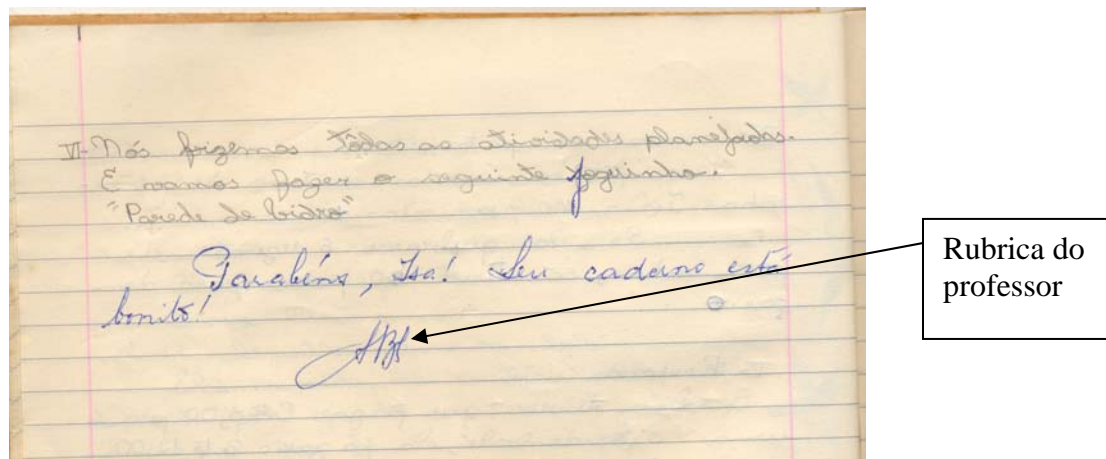 VI - Nós fizemos tôdas as atividades planejadas.
E vamos fazer o seguinte joguinho.
"Parede de Vidro"
Parabéns, Isa! Seu caderno está
bonito!
Rubrica do
professor